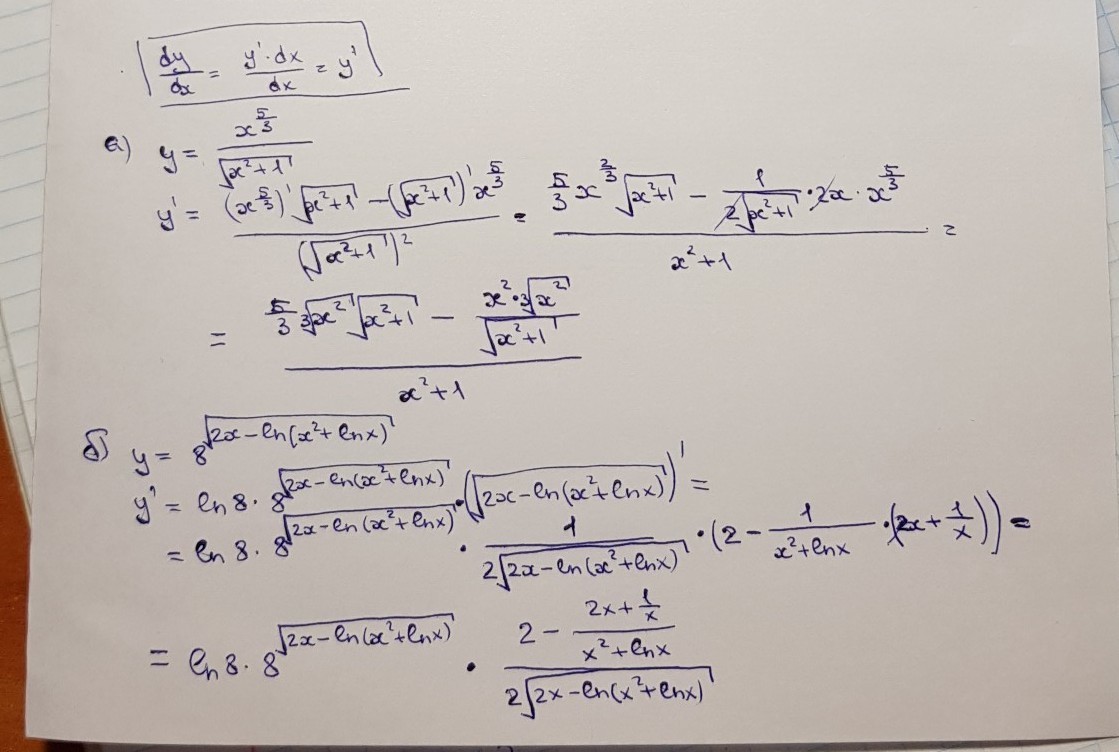 dy/dx = y'·dx/dx = y'
а) y = x^(5/3)/√(x²+1)
y' = ((x^(5/3))'√(x²+1) − (√(x²+1))' x^(5/3))/(√(x²+1))² = (5/3 x^(2/3) √(x²+1) − 1/(2√(x²+1)) · 2x · x^(5/3))/(x²+1) =
= (5/3 ³√(x²) √(x²+1) − (x²·³√(x²))/√(x²+1))/(x²+1)
б) y = 8^√(2x−ln(x²+lnx))
y' = ln8 · 8^√(2x−ln(x²+lnx)) · (√(2x−ln(x²+lnx)))' =
= ln8 · 8^√(2x−ln(x²+lnx)) · 1/(2√(2x−ln(x²+lnx))) · (2 − 1/(x²+lnx) · (2x + 1/x)) =
= ln8 · 8^√(2x−ln(x²+lnx)) · (2 − (2x + 1/x)/(x²+lnx))/(2√(2x−ln(x²+lnx)))